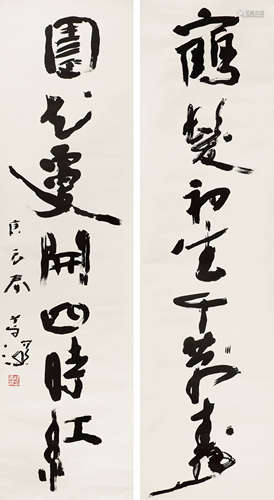 鶴髮初生千萬壽
園花更開四時紅
庚辰春